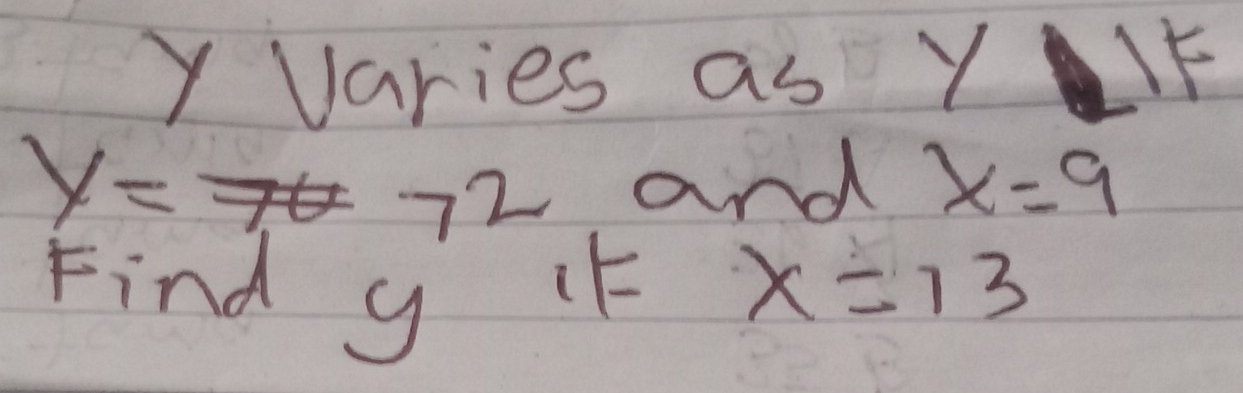 Y Varies as Y IF
Y= 72 and x=9
Find y if x=13